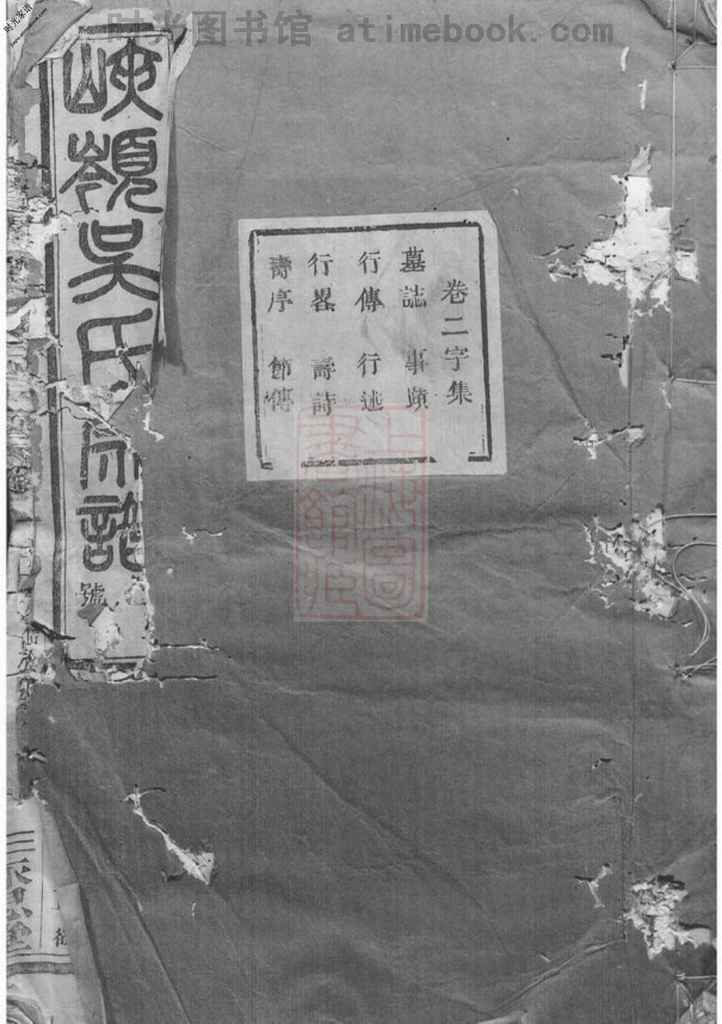 时光图书馆 atimebook.com
时光家谱
卷二字集
墓誌 事蹟
行傳 行述
行畧 壽詩
壽序 節傳
峽嶺吳氏宗譜
號